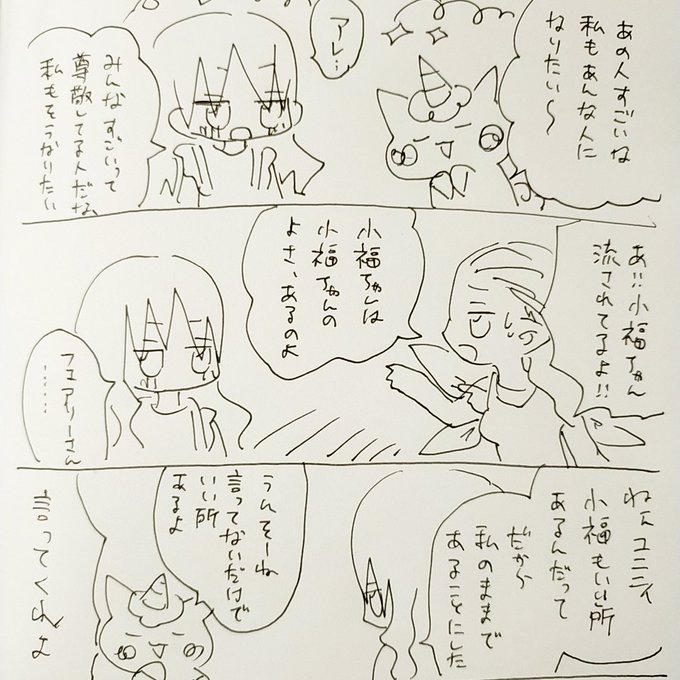 あの人すごいな
私もあんな人に
なりたい〜
アレ…
みんなすごいって
尊敬してる人だな、
私もそうなりたい
あ!!小福ちゃん
流されてるよ!!
小福ちゃんは
小福ちゃんの
よさ、あるのよ
フェアリーさん
……
ねえユニティ
小福もいい所
あるんだって
だから
私のままで
あることにした
うんそーね
言ってないだけで
いい所
あるよ
言ってくれよ